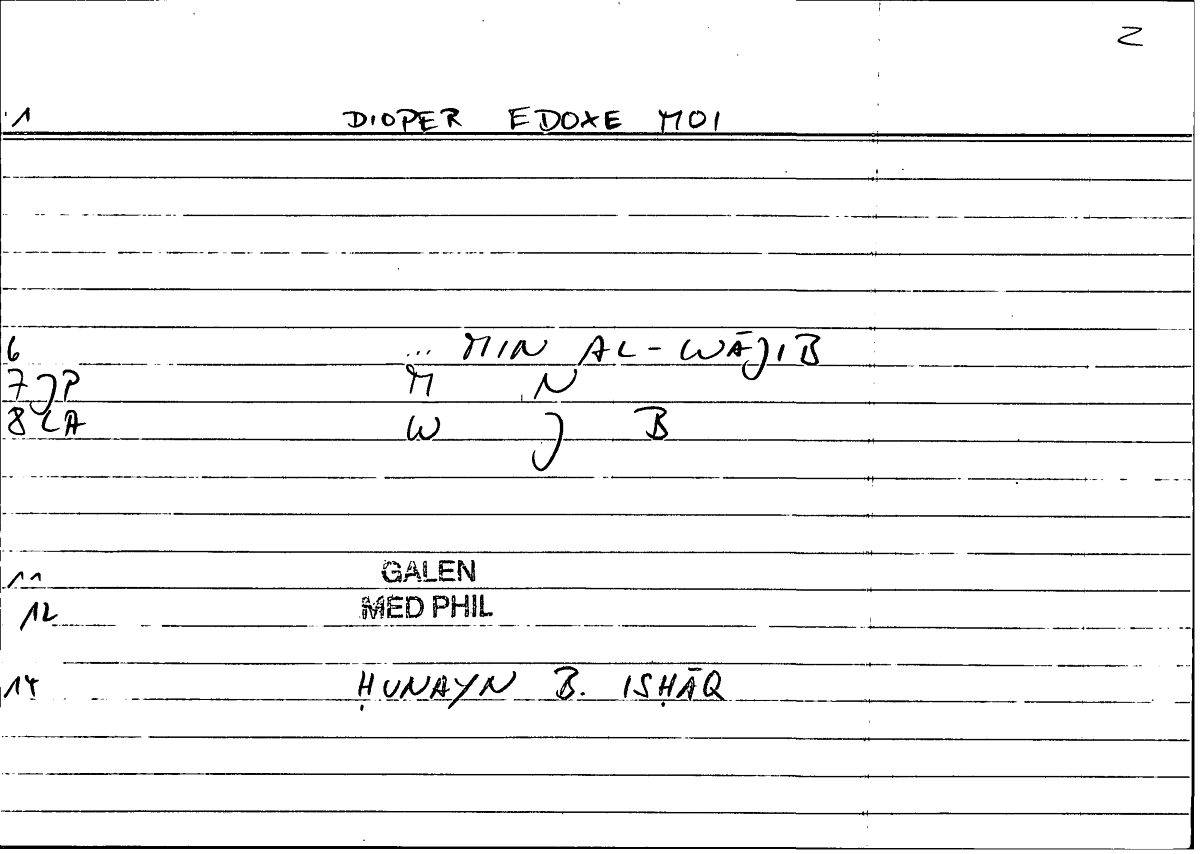 2
1 DIOPER EDOXE MOI
6 ... MIN AL-WĀJIB
7 JP M N
8 LA W J B
11 GALEN
12 MED PHIL
14 ḤUNAYN B. ISḤĀQ